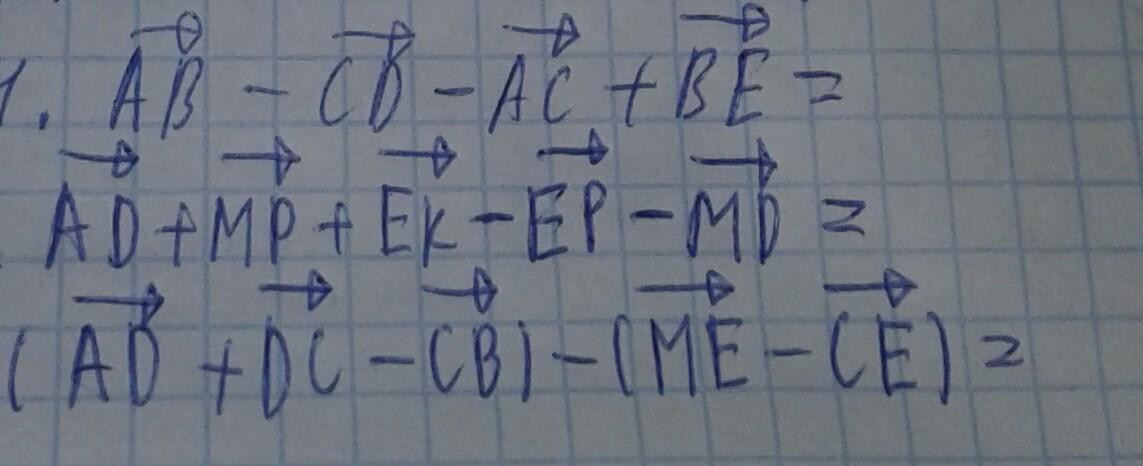 1. $\overrightarrow{AB} - \overrightarrow{CD} - \overrightarrow{AC} + \overrightarrow{BE} =$
$\overrightarrow{AD} + \overrightarrow{MP} + \overrightarrow{EK} - \overrightarrow{EP} - \overrightarrow{MD} =$
$(\overrightarrow{AD} + \overrightarrow{DC} - \overrightarrow{CB}) - (\overrightarrow{ME} - \overrightarrow{CE}) =$